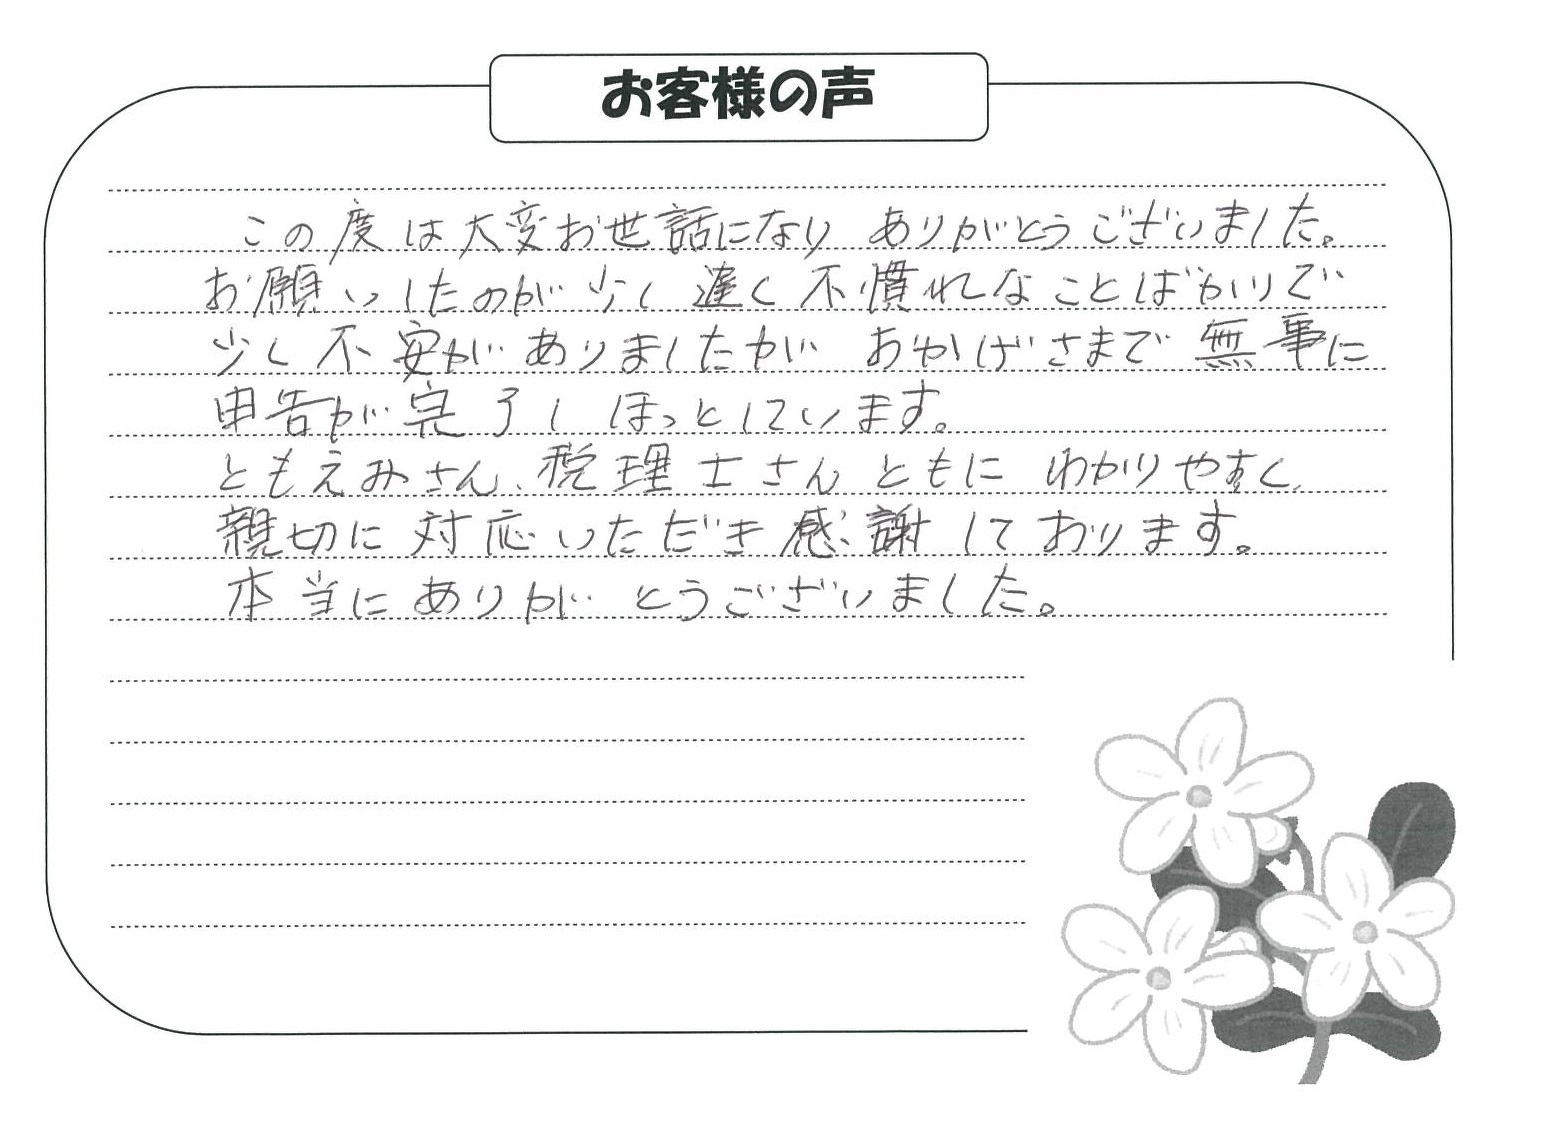 お客様の声
この度は大変お世話になり ありがとうございました。
お願いしたのが少し遅く不慣れなことばかりで
少し不安がありましたが おかげさまで無事に
申告が完了し ほっとしています。
ともえみさん、税理士さんともに わかりやすく、
親切に対応いただき感謝しております。
本当にありがとうございました。